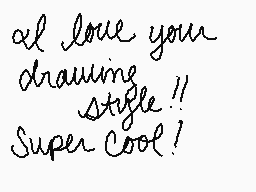 I love your
drawing
style!!
Super cool!